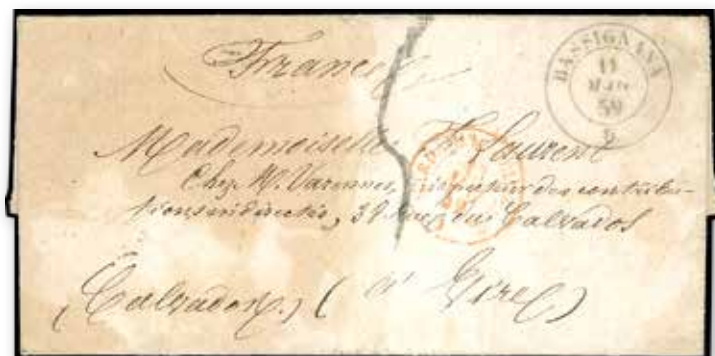 France
BASSIGNANA
11
59
Mademoiselle Laurent
Chez M. Varennes, inspecteur des contribu-
tions indirectes, rue du Calvados
(Calvados.) (à Vire)